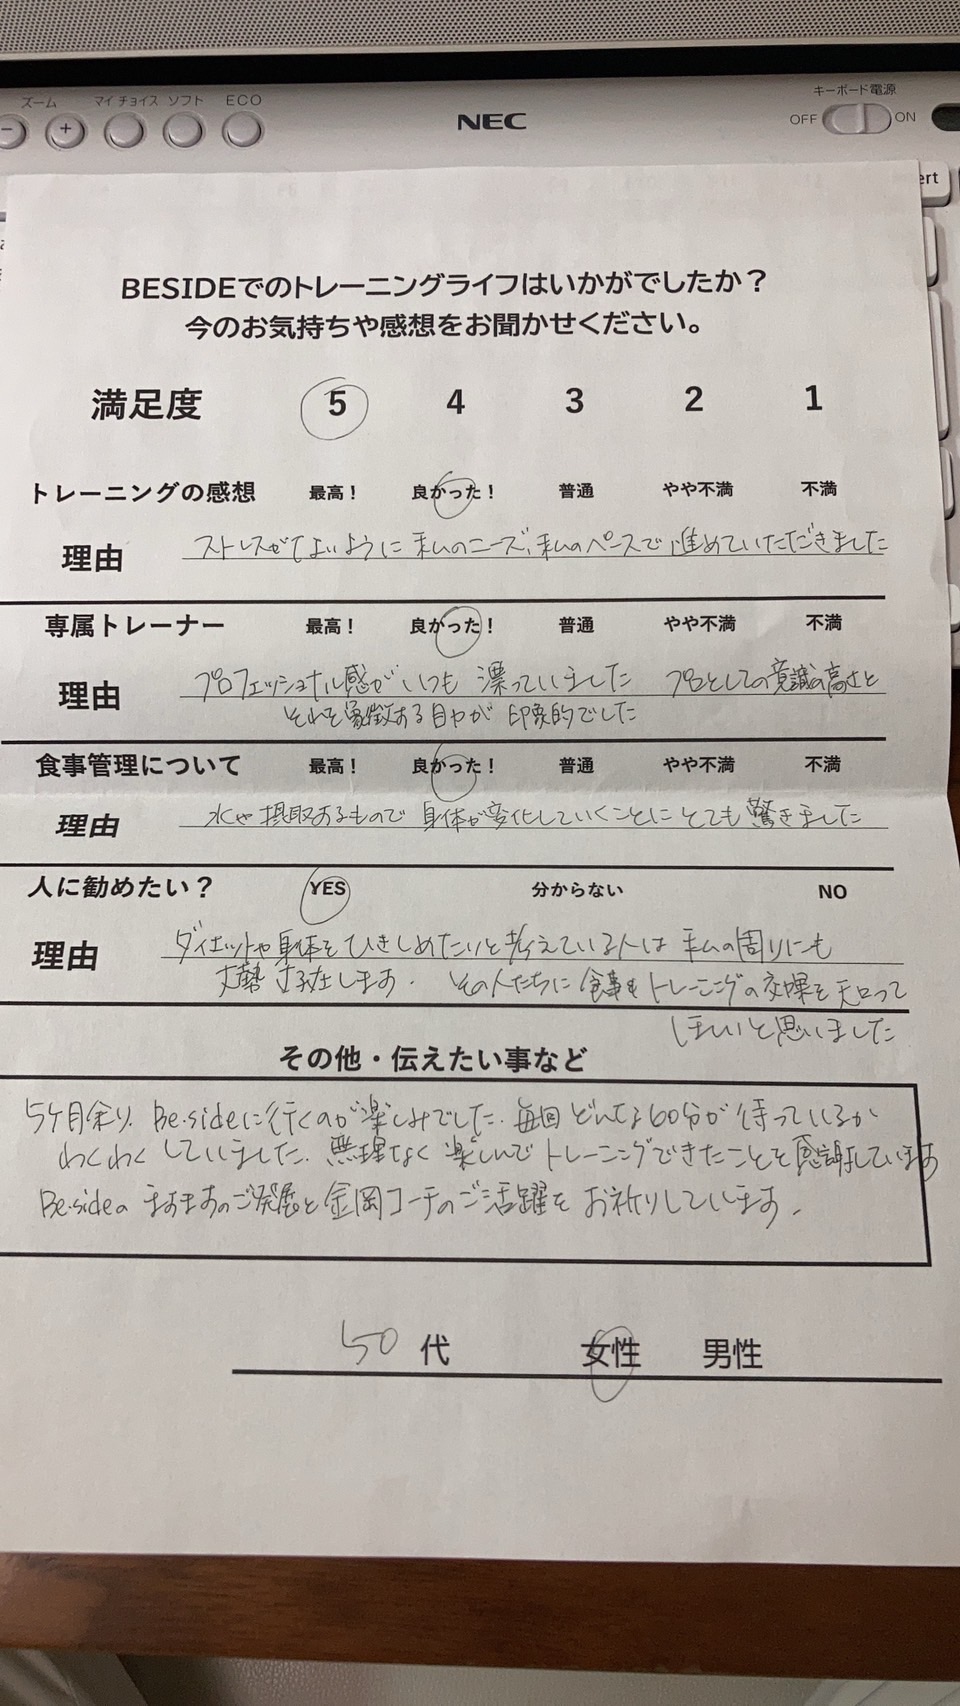 ズーム マイ チョイス ソフト ECO
− +
NEC
キーボード電源
OFF ON
ert
BESIDEでのトレーニングライフはいかがでしたか？
今のお気持ちや感想をお聞かせください。
満足度 5 4 3 2 1
トレーニングの感想 最高！ 良かった！ 普通 やや不満 不満
理由 ストレスがないように 私のニーズ、私のペースで進めていただきました
専属トレーナー 最高！ 良かった！ 普通 やや不満 不満
理由 プロフェッショナル感がいつも 漂っていました プロとしての意識の高さと
それを象徴する 印象的でした
食事管理について 最高！ 良かった！ 普通 やや不満 不満
理由 水や摂取するもので 身体が変化していくことに とても驚きました
人に勧めたい？ YES 分からない NO
理由 ダイエットや身体をひきしめたいと考えている人は 私の周りにも
大勢 存在します. その人たちに 食事も トレーニングの 効果を 知って
ほしいと思いました
その他・伝えたい事など
5ヶ月余り. Be.sideに行くのが楽しみでした. 毎回 どんな60分が待っているか
わくわくしていました. 無理なく 楽しんで トレーニングできたことを感謝しています
Be.sideの ますますのご発展と 金岡コーチのご活躍を お祈りしています.
50代 女性 男性